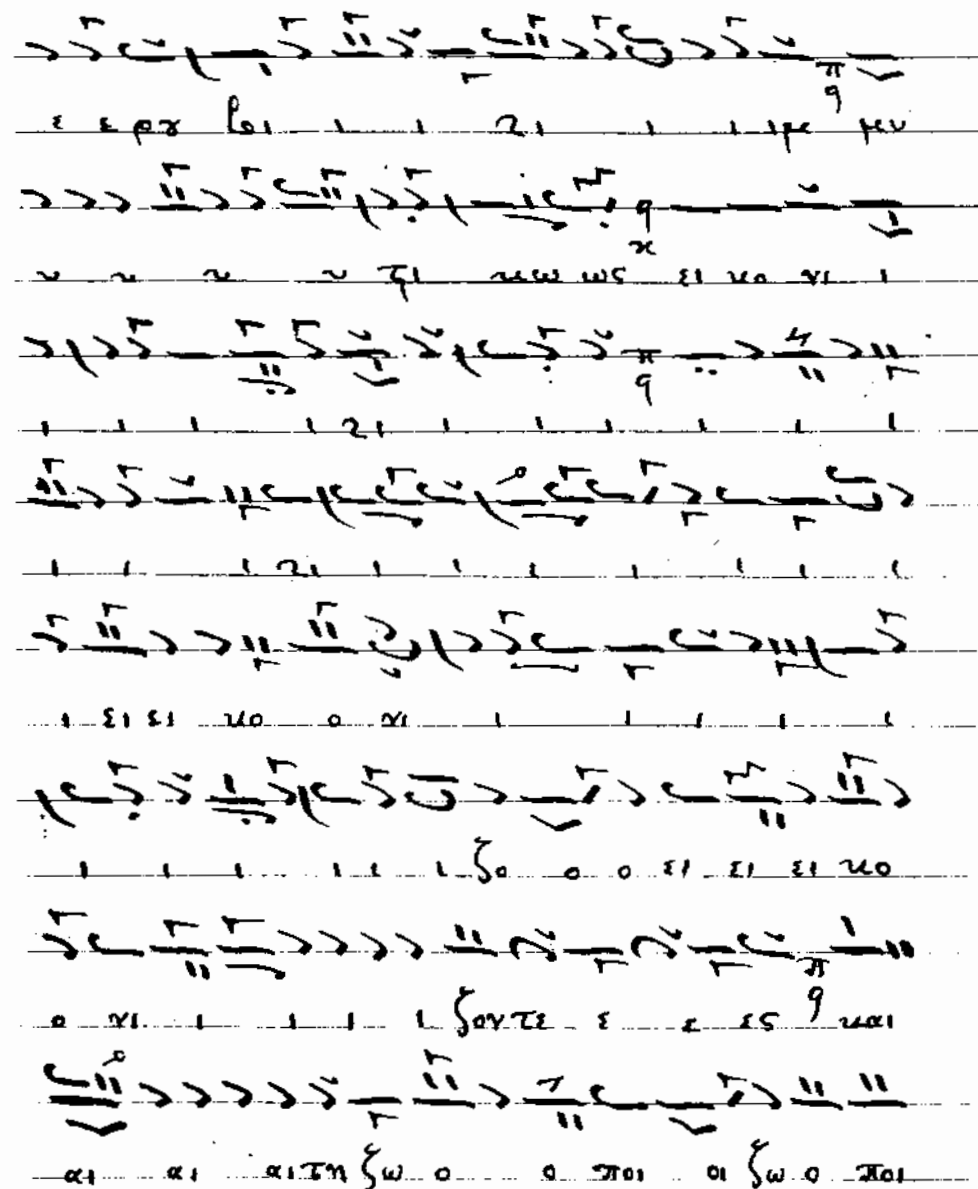 ε ε ρου βι ι ι χι ι ι ιμ μυ
υ υ υ υ στι κω ως ει κο νι ι
ι ι ι ι χι ι ι ι ι ι ι
ι ι ι χι ι ι ι ι ι ι ι
ι ει ει κο ο νι ι ι ι ι ι
ι ι ι ι ι ι ζο ο ο ει ει ει κο
ο νι ι ι ι ι ζοντε ε ε ες και
αι αι αι τη ζω ο ο ποι οι ζω ο ποι